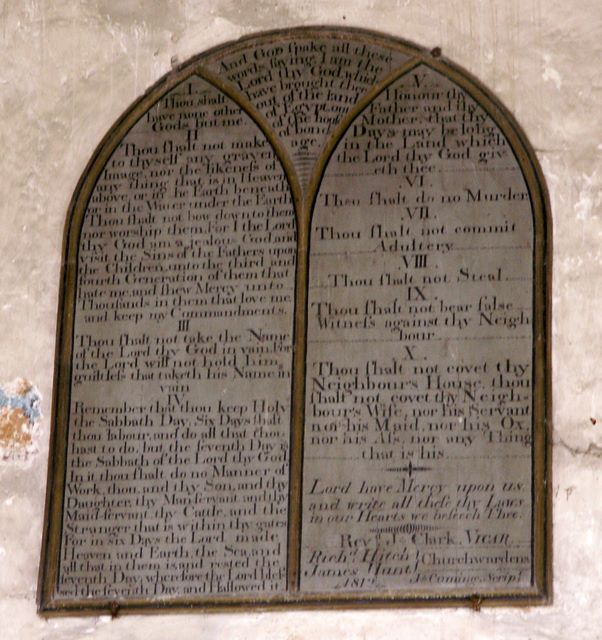 And God spake all these
words saying, I am the
Lord thy God, which
have brought thee
out of the land
of Egypt, out
of the house
of bond
age.
I
Thou shalt
have none other
Gods but me
II
Thou shalt not make
to thyself any graven
image, nor the likeness of
any thing that is in Heaven
above, or in the Earth beneath
or in the Water under the Earth
Thou shalt not bow down to them
nor worship them, For I the Lord
thy God am a jealous God and
visit the Sins of the Fathers upon
the Children, unto the third and
fourth Generation of them that
hate me, and shew Mercy unto
Thousands in them that love me
and keep my Commandments.
III
Thou shalt not take the Name
of the Lord thy God in vain, For
the Lord will not hold him
guiltless that taketh his Name in
vain
IV
Remember that thou keep Holy
the Sabbath Day, Six Days shalt
thou labour, and do all that thou
hast to do, but the seventh Day is
the Sabbath of the Lord thy God
In it thou shalt do no Manner of
Work, thou, and thy Son, and thy
Daughter, thy Man-servant, and thy
Maid-servant, thy Cattle, and the
Stranger that is within thy gates
For in Six Days the Lord made
Heaven and Earth, the Sea, and
all that in them is, and rested the
seventh Day, wherefore the Lord bles
sed the seventh Day, and Hallowed it.
V
Honour thy
Father and thy
Mother, that thy
Days may be long
in the Land which
the Lord thy God giv
eth thee
VI
Thou shalt do no Murder
VII
Thou shalt not commit
Adultery
VIII
Thou shalt not Steal
IX
Thou shalt not bear false
Witness against thy Neigh
bour
X
Thou shalt not covet thy
Neighbour's House, thou
shalt not covet thy Neigh-
bour's Wife, nor his Servant
nor his Maid, nor his Ox,
nor his Ass, nor any Thing
that is his
Lord have Mercy upon us,
and write all these thy Laws
in our Hearts we beseech Thee.
Revd. Js. Clark, Vicar
Richd. Hitch
James Hunt
Churchwardens
Js Coming, Script